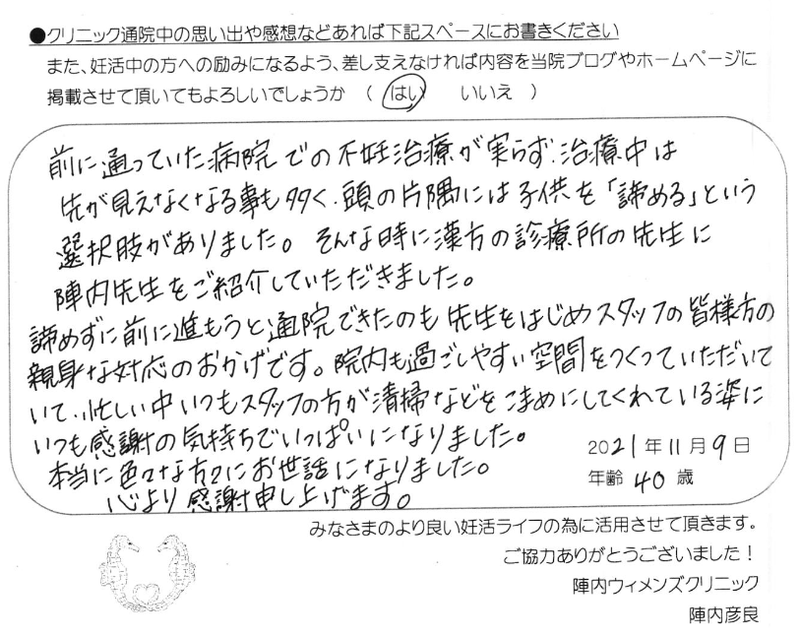 ●クリニック通院中の思い出や感想などあれば下記スペースにお書きください
また、妊活中の方への励みになるよう、差し支えなければ内容を当院ブログやホームページに
掲載させて頂いてもよろしいでしょうか （ はい　いいえ ）
前に通っていた病院での不妊治療が実らず、治療中は
先が見えなくなる事も多く、頭の片隅には子供を「諦める」という
選択肢がありました。そんな時に漢方の診療所の先生に
陣内先生をご紹介していただきました。
諦めずに前に進もうと通院できたのも先生をはじめスタッフの皆様方の
親身な対応のおかげです。院内も過ごしやすい空間をつくっていただいて
いて、忙しい中いつもスタッフの方が清掃などをこまめにしてくれている姿に
いつも感謝の気持ちでいっぱいになりました。
本当に色々な方々にお世話になりました。
心より感謝申し上げます。
2021年11月9日
年齢 40歳
みなさまのより良い妊活ライフの為に活用させて頂きます。
ご協力ありがとうございました！
陣内ウィメンズクリニック
陣内彦良